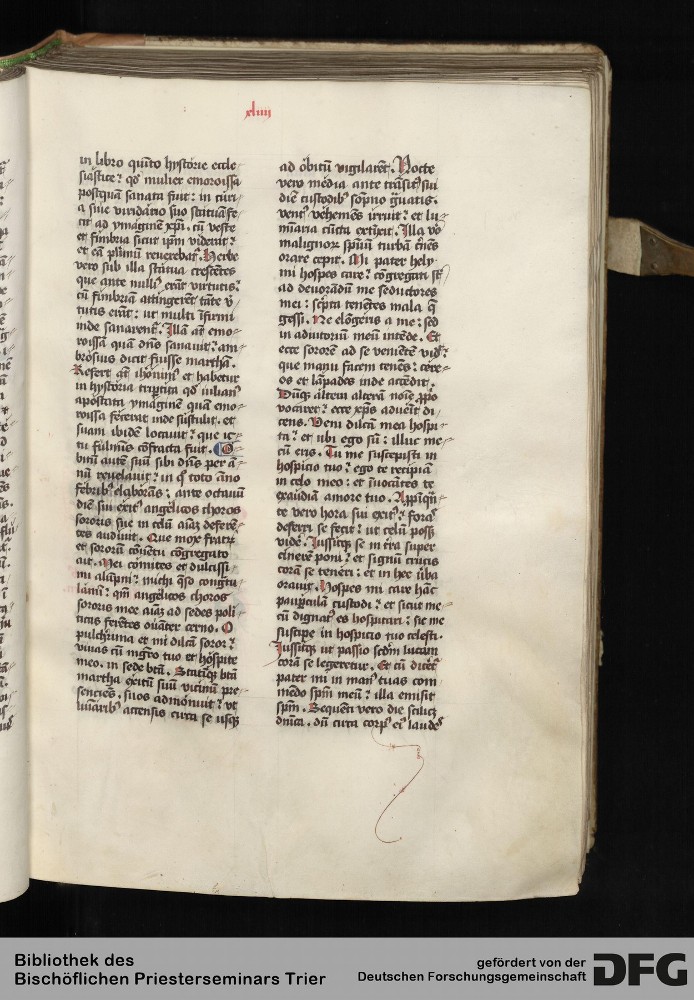 xliiii
in libro quīto hystorie eccle⸗
siastice? qd̄ mulier emoroissa
postquā sanata fuit: in curi⸗
a siue viridario suo statuā fe⸗
cit ad ymaginē xp̄i. cū veste
et fimbria sicut ip̄m viderat?
et eā plurimū reuerebat᷑. Herbe
vero sub illa statua crescētes
que ante nulliꝰ erāt virtutis?
cū fimbriam attingerēt tāte v̾⸗
tutis erāt: ut multi īfirmi
inde sanarent᷑. Illā āt emo⸗
roissā quā dn̄s sanauit? am⸗
brosius dicit fuisse marthā.
Refert āt ihōnimꝰ et habetur
in hystoria tripertita qd̄ iulianꝰ
apostata ymaginē quā emo⸗
roissa fecerat inde sustulit. et
suam ibidē locauit? que ic⸗
tu fulminis cōfracta fuit. O⸗
bitū autē suū sibi dn̄s per ā⸗
nū reuelauit? in quo toto āno
febribꝰ elaborās; ante octauū
diē sui exitꝰ angelicos choros
sororis sue in celū aīaꝫ deferē⸗
tes audiuit. Que mox fratrū
et sororum cōuētū cōgregato
ait. Mei comites et dulcissi⸗
mi alūpni? michi q̄so congtu⸗
lamī? qm̄ angelicos choros
sororis mee aīaꝫ ad sedes polli⸗
ticas ferētes ouāter cerno. O
pulcherrima et mi dilcā soror?
viuas cū mgr̄o tuo et hospite
meo. in sede btā. Statīqꝫ btā
martha exitū suū vicinū pre⸗
senciēs. suos admonuit? ut
luīaribꝰ accensis circa se usqꝫ
ad obitū vigilarēt. Nocte
vero media ante trāsitꝰ sui
diē custodibꝰ sopno ḡuatis.
ventꝰ vehemēs irruit? et lu⸗
minaria cūcta extīxit. Illa v̾o
malignorꝫ sp̄uū turbā c̄nēs
orare cepit. Mi pater hely⸗
mi hospes care? cōgregati st̄
ad deuorādū me seductores
mei: scripta tenētes mala que
gessi. Ne elōgeris a me: sed
in adiutorium meū intēde. Et
ecce sororē ad se veniētē vidit?
que manu facem tenēs? cere⸗
os et lāpades inde accēdit.
Dūqꝫ altera alterā noīe prop̄o
vocaret? ecce xp̄s aduēit di⸗
cens. Veni dilcā mea hospi⸗
ta? et ubi ego sū: illuc me⸗
cū eris. Tu me suscepisti in
hospicio tuo? ego te recipiā
in celo meo: et īuocātes te
exaudiā amore tuo. Appīquā⸗
te vero hora sui exitꝰ? foras
deferri se fecit? ut celū poss;
vidē. Iussitqꝫ se in tra super
cinerē poni? et signū crucis
corā se teneri: et in hec v̾ba
orauit. Hospes mi care hāc
paupculā custodi? et sicut me⸗
cū dignatꝰ es hospitari: sic me
suscipe in hospicio tuo celesti.
Iussitqꝫ ut passio scdm̄ lucam
corā se legeretur. Et cū dicēt᷑
pater mi in manꝰ tuas com⸗
mēdo spm̄ meū? illa emisit
spm̄. Sequēti vero die scilicꝫ
dn̄ica. dū circa corpꝰ eiꝰ laudeˢ
Bibliothek des
Bischöflichen Priesterseminars Trier
gefördert von der
Deutschen Forschungsgemeinschaft
DFG